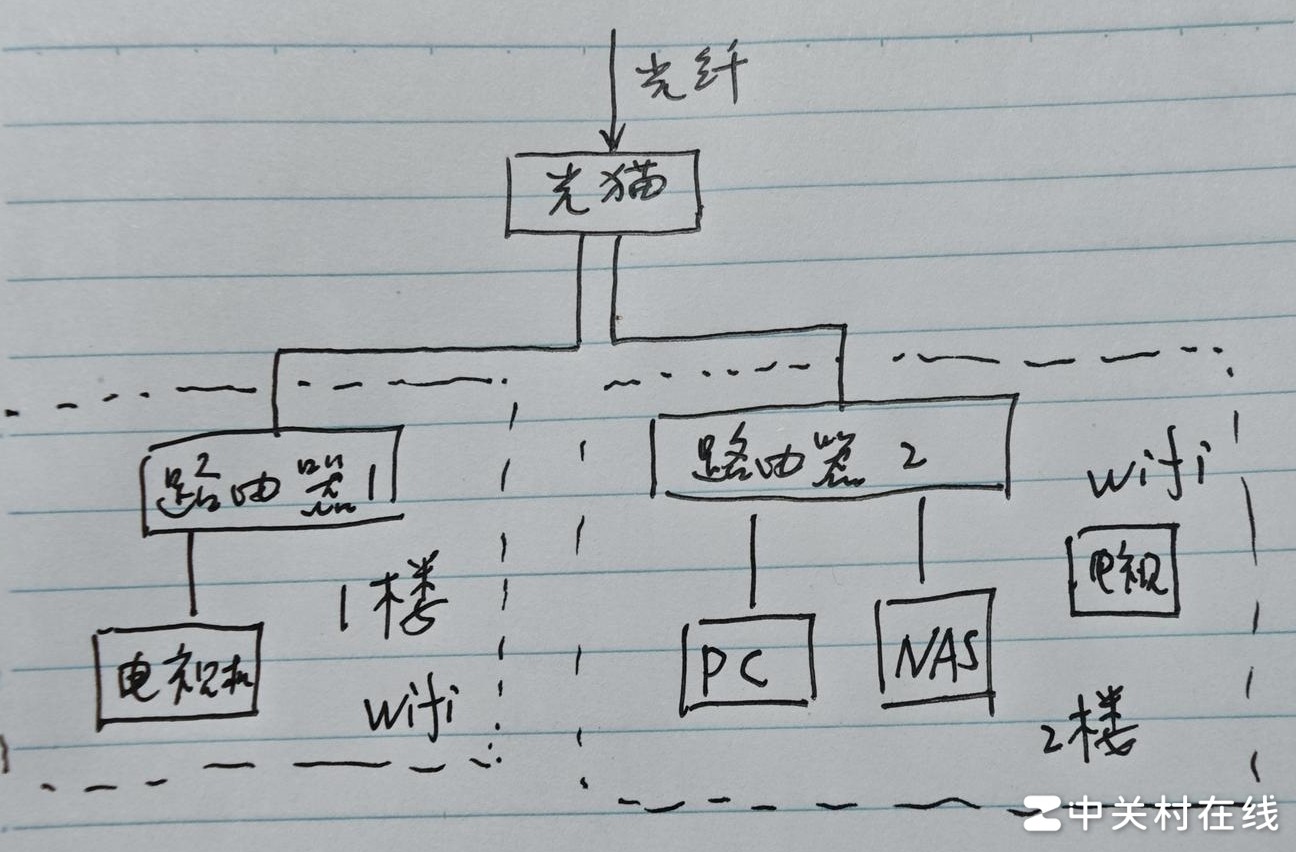 光纤
光猫
路由器1
路由器 2
wifi
电视
1楼
电视机
PC
NAS
wifi
2楼
中关村在线